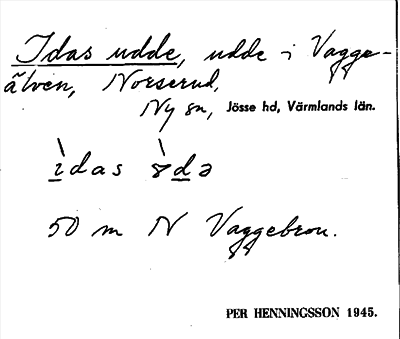 Idas udde, udde i Vagge-
älven, Norserud,
Ny sn, Jösse hd, Värmlands län.
ìdas 
50 m N Vaggebron.
PER HENNINGSSON 1945.